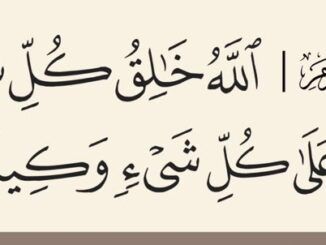 | ٱللَّهُ خَـٰلِقُ كُلِّ
عَلَىٰ كُلِّ شَىْءٍ وَكِيـ